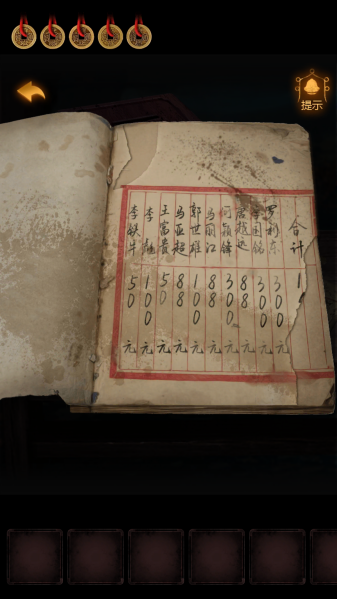 提示
李铁牛 50元
李 100元
王富贵 50元
马亚超 88元
郭世雄 100元
马丽江 88元
何颖锋 300元
超远 88元
国铭 300元
罗利东 300元
合计 1